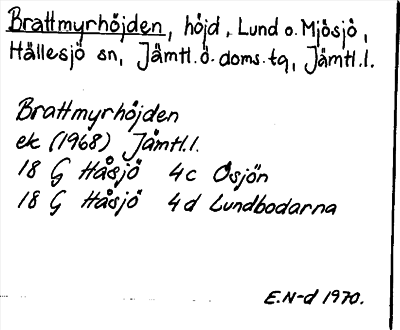 Brattmyrhöjden, höjd, Lund o. Mjösjö,
Hällesjö sn, Jämtl. ö. doms. tg, Jämtl. l.
Brattmyrhöjden
ek (1968) Jämtl. l.
18 G Håsjö 4c Ösjön
18 G Håsjö 4d Lundbodarna
E.N-d 1970.